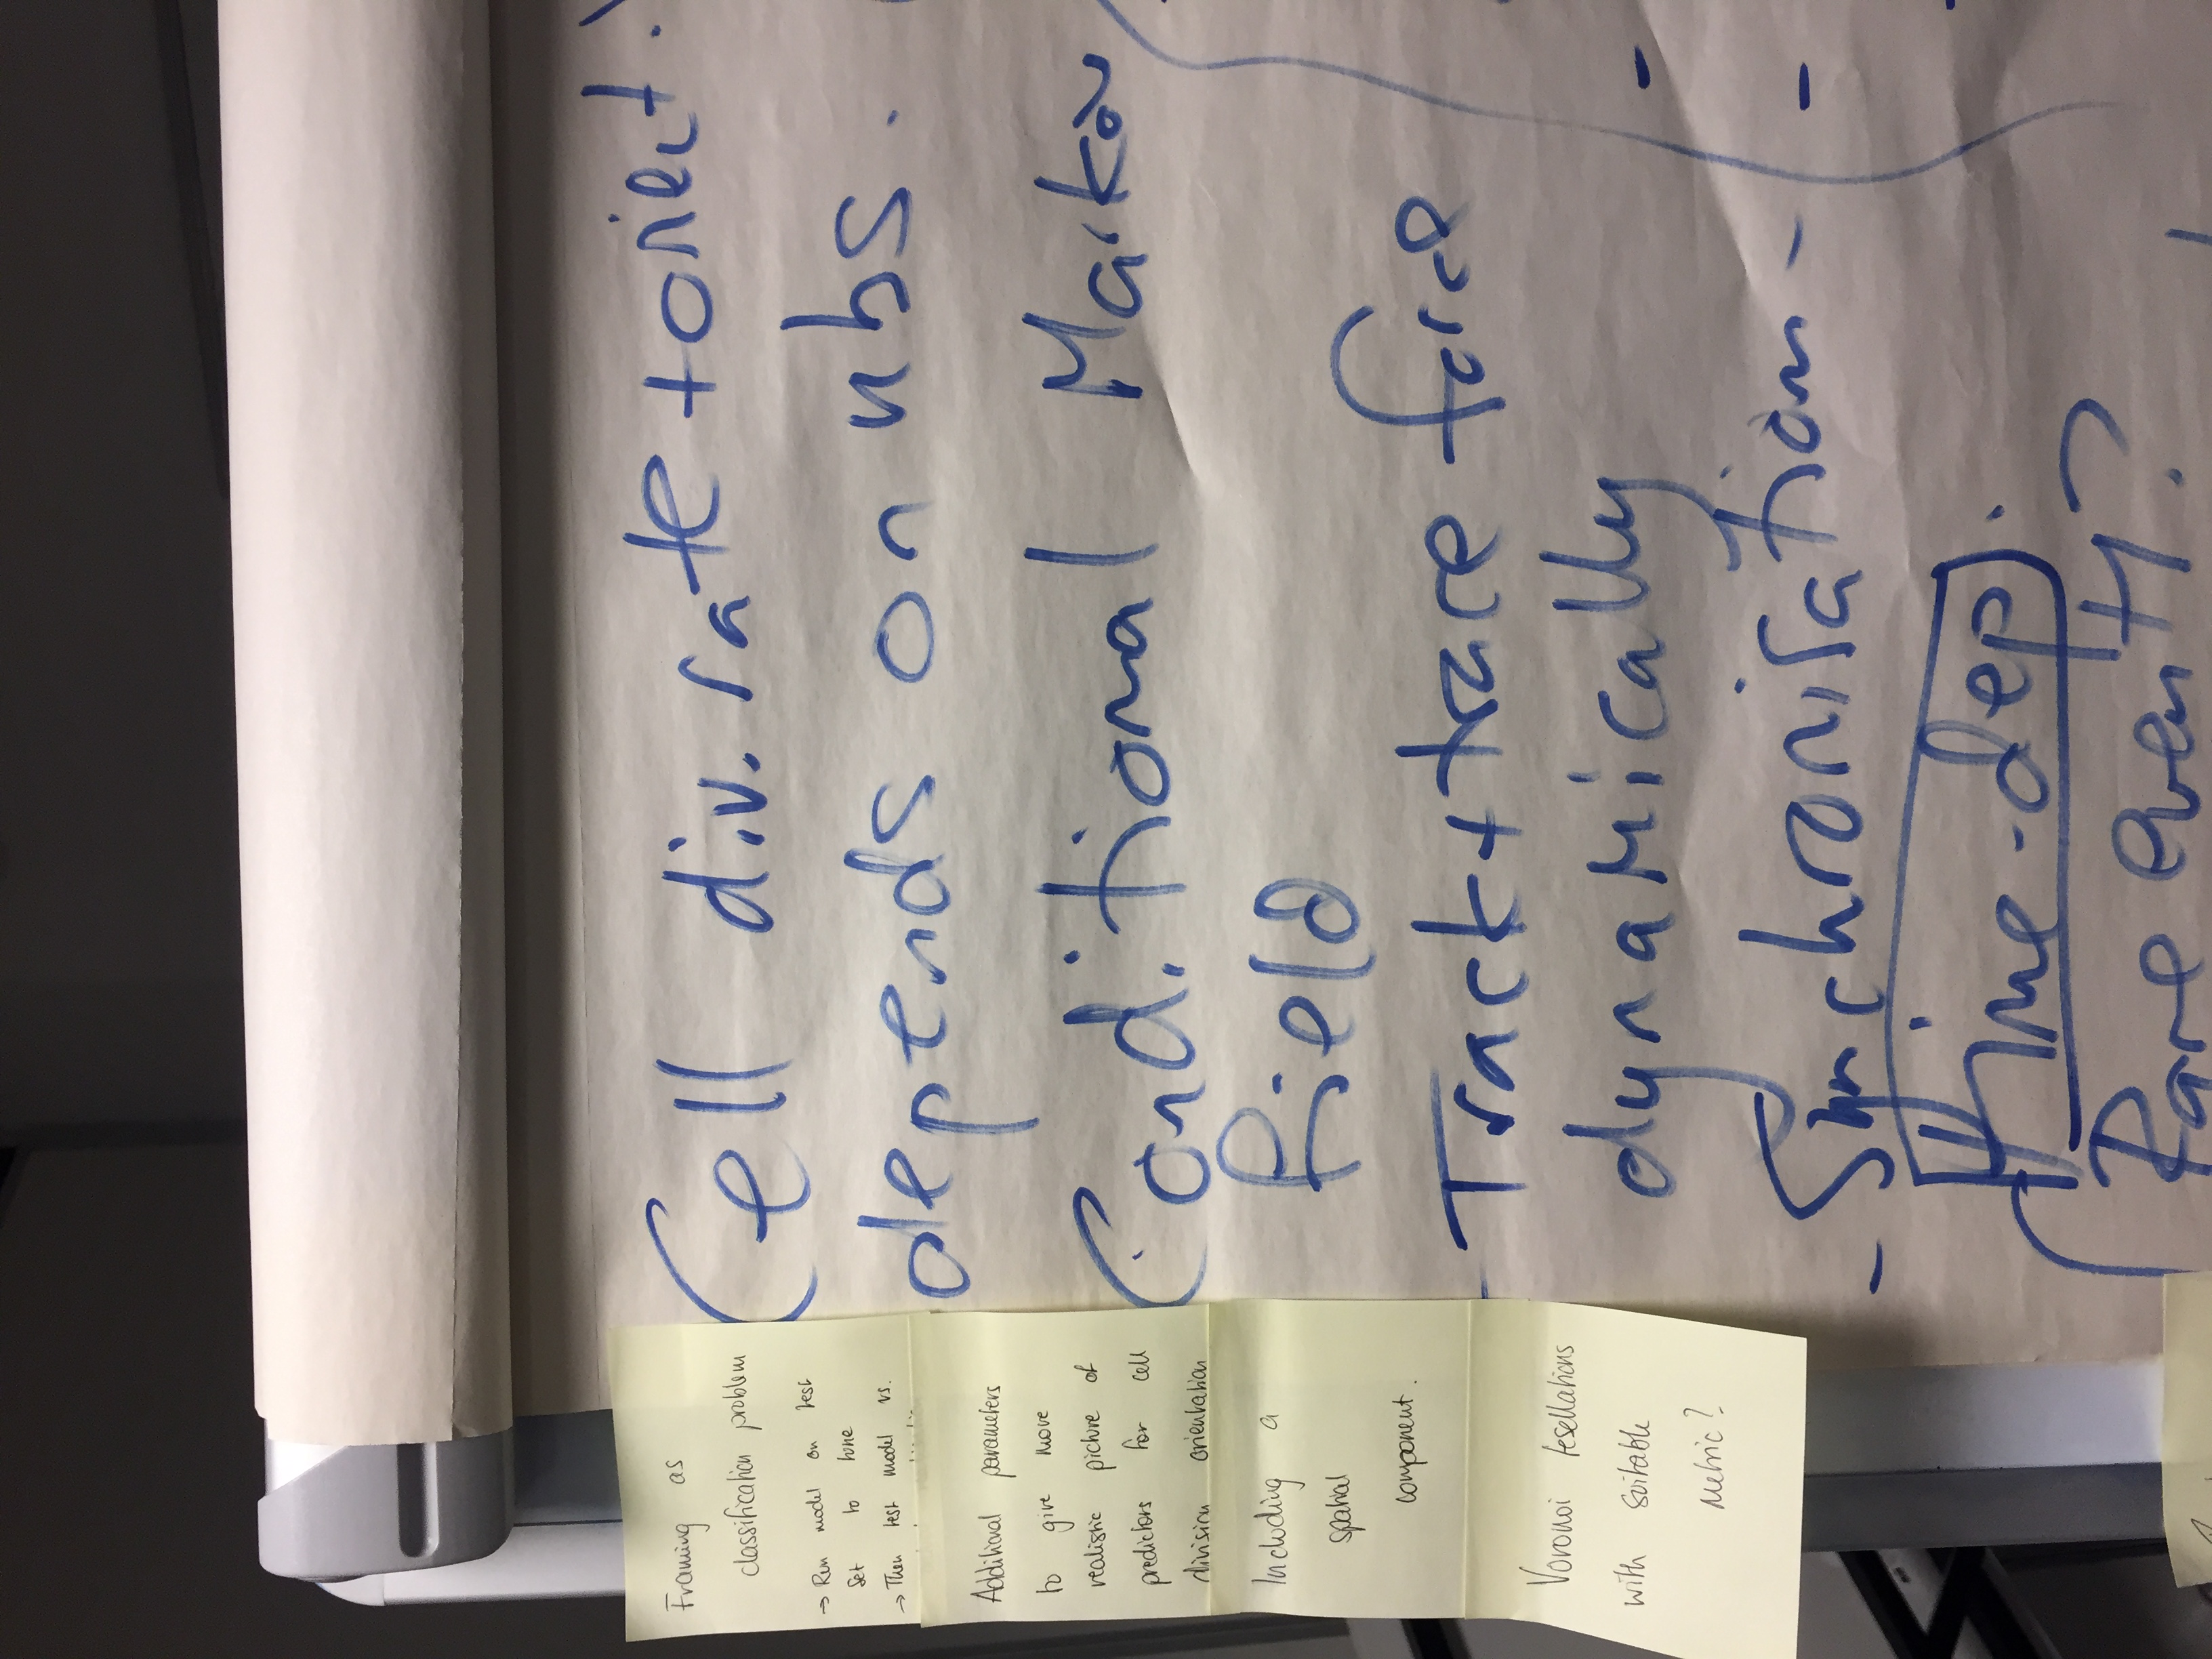 Framing as
classification problem
→ Run model on test
set to tune
→ Then test model vs.
Additional parameters
to give more
realistic picture of
predictors for cell
division orientation
Including a
spatial
component.
Voronoi tesellations
with suitable
metric?
Cell div. rate + orient.
depends on nbs.
Conditional Markov
field
- Track + trace force
dynamically
- Synchronisation -
time-dep.
(Rare event?)